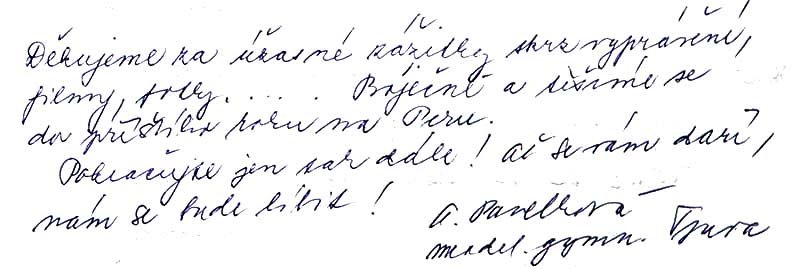 Děkujeme za úžasné zážitky skrz vyprávění,
filmy, fotky. . . . . Báječné a těšíme se
do příštího roku na Peru.
Pokračujte jen tak dále! Ať se vám daří,
nám se bude líbit!
A. Pavelková
gymn.